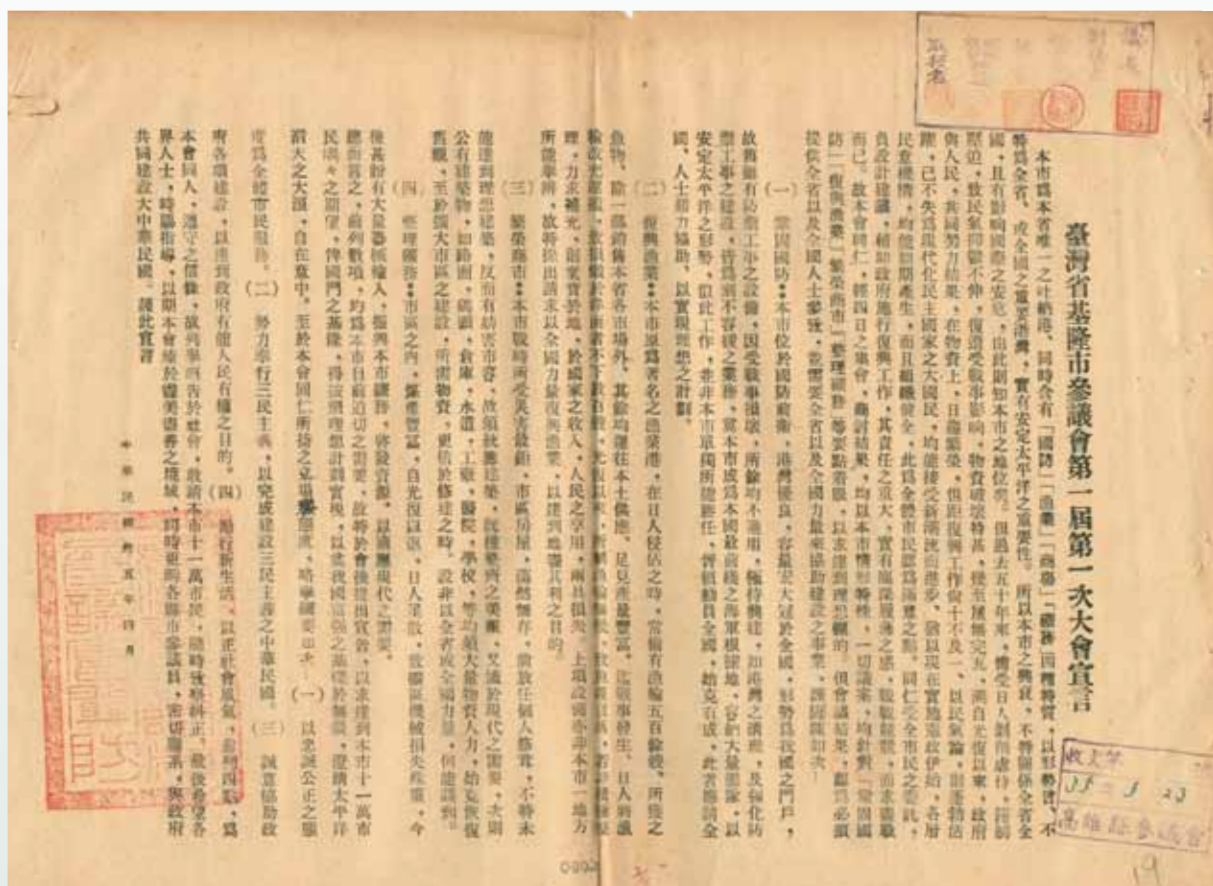 臺灣省基隆市參議會第一屆第一次大會宣言
本市為本省唯一之吐納港，同時含有「國防」「漁業」「商場」「礦務」四種特質，以形勢言，不
特為全省，或全國之重要港灣，實有安定太平洋之重要性。所以本市之興衰，不特關係全省全
國，且有影響國際之安危，由此則知本市之地位矣。但過去五十年來，備受日人剝削虐待，
壓迫，致民氣抑鬱不伸，復遭受戰事影響，物資破壞特甚，幾至屋無完瓦，溯自光復以來，政府
與人民，共同努力結果，在物資上，日趨繁榮，但距復興工作尚十不及一、以民氣論，則蓬勃活
躍，已不失為現代化民主國家之大國民，均能接受新潮流而進步、猶以現在實施憲政伊始，各層
民意機構，均能如期產生，而且組織健全，此為全體市民認為滿意之點。同仁受全市民之委託，
負設計建議，輔助政府施行復興工作，其責任之重大，實有臨深履薄之感，戰戰兢兢，
而已。故本會同仁，經四日之集會，商討結果，均以本市情形特殊，一切議案，均針對「鞏固國
防」「復興漁業」「繁榮商市」「整理礦務」等要點着眼，以求達到理想
提供全省以及全國人士參攷，並需要全省以及全國力量來協助建設之事業，謹縷陳如次：
（一）　鞏固國防：本市位於國防前衛，港灣優良，容量宏大冠於全國，形勢為我國之門戶，
故舊雖有防禦工事之設備，因受戰事損壞，所餘均不適用，極待興建，如港灣之清理，及強化防
禦工事之建設，皆為刻不容緩之業務，冀本市成為本國最前綫之海軍根據地，容納大量艦隊，以
安定太平洋之形勢，但此工作，並非本市單獨所能勝任，
國，人士精力協助，以實現理想之計劃。
（二）　復興漁業：本市原為著名之漁業港，在日人侵佔之時，常備有漁輪五百餘艘、所獲之
魚物、除一部銷售本省各市場外，其餘均運往本土供應，足見產量豐富，迄戰事發生，日人將漁
理，力求補充，則貨棄於地，於國家之收入，人民之享用，兩具損失，上項設備亦非本市一地方
所能舉辦，故特提出請求以全國力量復興漁業，以達到地盡其利之目的。
（三）　繁榮商市：本市戰時所受災害最鉅，市區房屋，蕩然無存，倘放任個人修葺，不特未
能達到理想建築，反而有妨害市容，
公有建築物，如路面，碼頭，倉庫，水道，工廠，醫院，學校，等均須大量物資人力，始克恢復
舊觀，至於擴大市區之建設，所需物資，更倍於修建之時。設非以全省或全國力量，何能濟到。
（四）　整理礦務：市區之內，煤產豐富，自光復以還，日人星散，致礦區機械損失殊重，今
後甚盼有大量器械輸入，振興本市礦務，啓發資源，以適應現代之需要。
總而言之，前列數項，均為本市目前迫切之需要，故特於會後提出宣言，以求達到本市十一萬市
民殷々之期望，俾國門之基隆，得按照理想計劃實現，以奠我國富強之基礎於無疆，澄清太平洋
滔天之大浪，自在意中。至於本會同仁所持之立場與態度，略舉綱要如次：（一）　以忠誠公正之態
度為全體市民服務。（二）　努力奉行三民主義，以完成建設三民主義之中華民國。（三）　誠意協助政
府各項建設，以達到政府有能人民有權之目的。（四）　勵行新生活，以正社會風氣，前列四點，為
本會同人，遵守之信條，故列舉昭告於社會，敬請本市十一萬市民，隨時致察糾正。最後希望各
界人士，時賜指導，以期本會臻於盡美盡善之境域，同時更盼各縣市參議員，密切聯系，與政府
共同建設大中華民國。謹此宣言
中華民國卅五年四月
收文第
高雄縣參議會
19